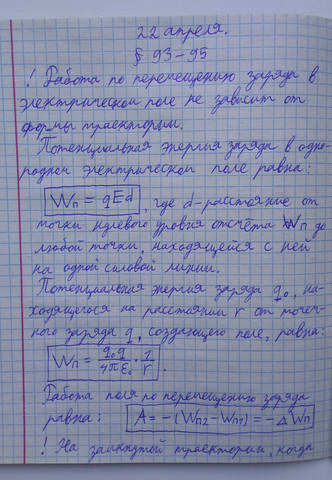 22 апреля.
§ 93-95
! Работа по перемещению заряда в
электрическом поле не зависит от
формы траектории.
Потенциальная энергия заряда в одно-
родном электрическом поле равна:
Wп = qEd, где d-расстояние от
точки нулевого уровня отсчёта Wп до
любой точки, находящейся с ней
на одной силовой линии.
Потенциальная энергия заряда q₀, на-
ходящегося на расстоянии r от точеч-
ного заряда q, создающего поле, равна:
Wп = q₀q/4πε₀ · 1/r.
Работа поля по перемещению заряда
равна: A = -(Wп2 - Wп1) = -ΔWп
! На замкнутой траектории, когда